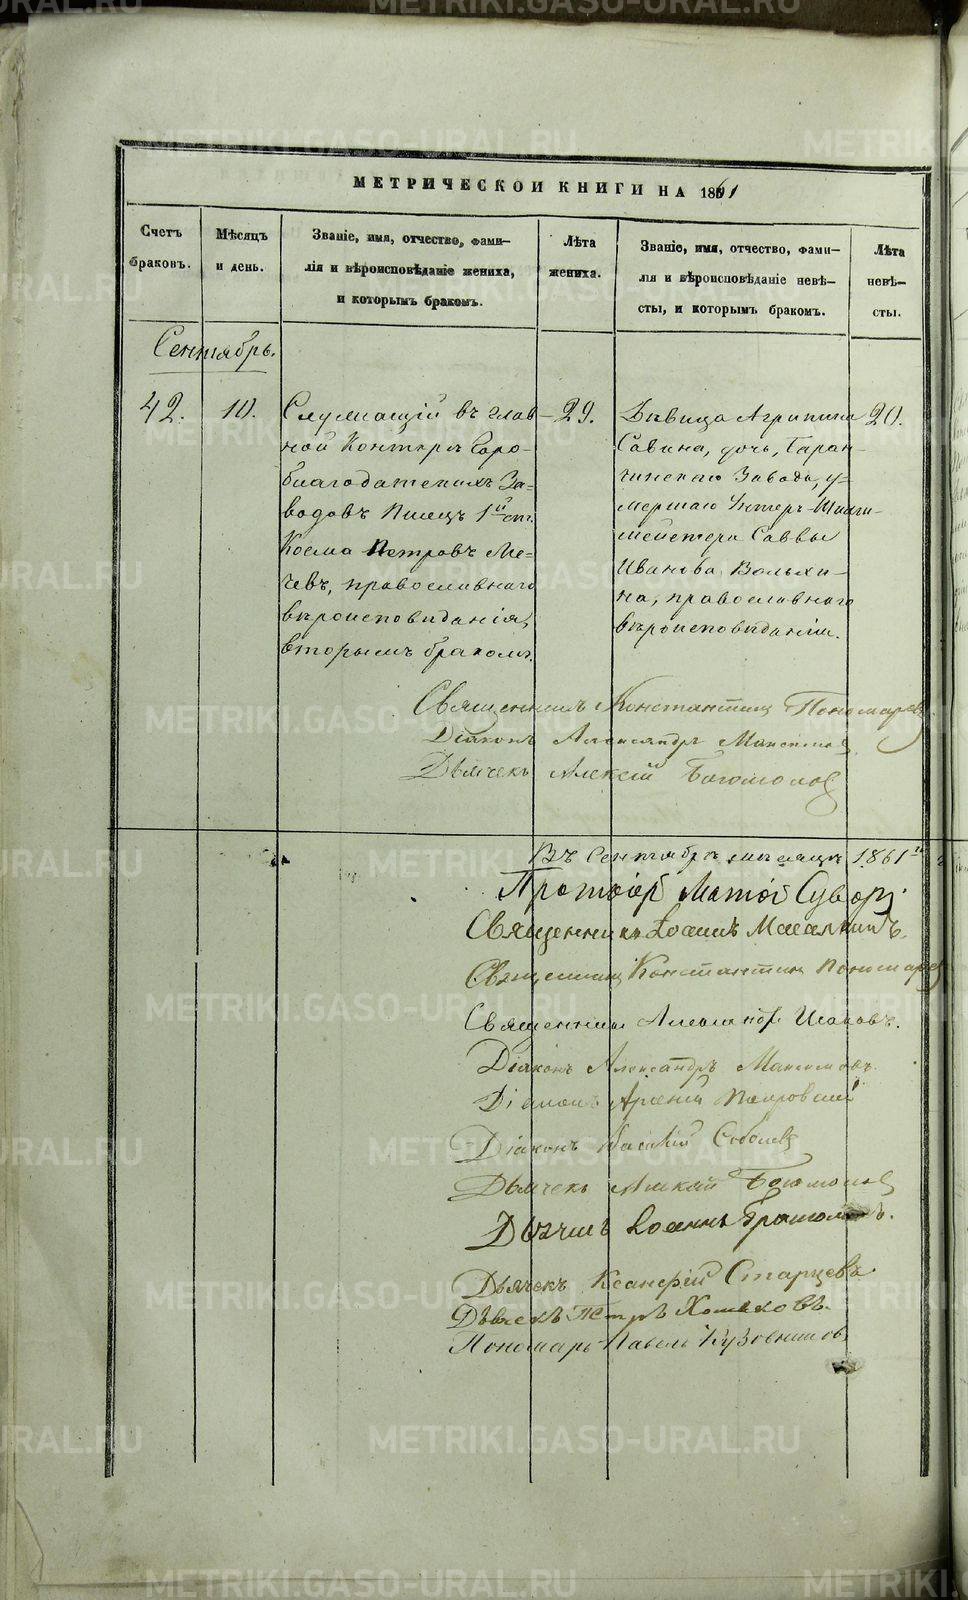 МЕТРИЧЕСКОЙ КНИГИ НА 1861
Счетъ браковъ.
Мѣсяцъ и день.
Званіе, имя, отчество, фами-
лія и вѣроисповѣданіе жениха,
и которымъ бракомъ.
Лѣта жениха.
Званіе, имя, отчество, фами-
лія и вѣроисповѣданіе невѣ-
сты, и которымъ бракомъ.
Лѣта невѣ-
сты.
Сентябрь.
42.
10.
Служащій въ глав-
ной Конторѣ Горо-
благодатскихъ За-
водовъ Писецъ 1й ст.
Косма Петровъ Ме-
чевъ, православнаго
вѣроисповѣданія,
вторымъ бракомъ.
29.
Дѣвица Агрипина
Савина, дочь, Баран-
чинскаго Завода, у-
мершаго Унтеръ-Шихт-
мейстера Саввы
Иванова Волыхи-
на, православнаго
вѣроисповѣданія.
20.
Священникъ Константинъ Пономаревъ
Діаконъ Александръ Максимовъ
Дьячекъ Алексій Богомоловъ
Въ Сентябрѣ мѣсяцѣ 1861го
Протоіерей
Священникъ Іоаннъ
Священникъ Константинъ Пономаревъ
Священникъ Александръ
Діаконъ Александръ Максимовъ
Діаконъ Арсеній
Діаконъ Василій Соболевъ
Дьячекъ Алексій Богомоловъ
Дьячекъ Іоаннъ
Дьячекъ Ксенофій Старцевъ
Дьячекъ Петръ Хомяковъ.
Пономарь Павелъ
METRIKI.GASO-URAL.RU